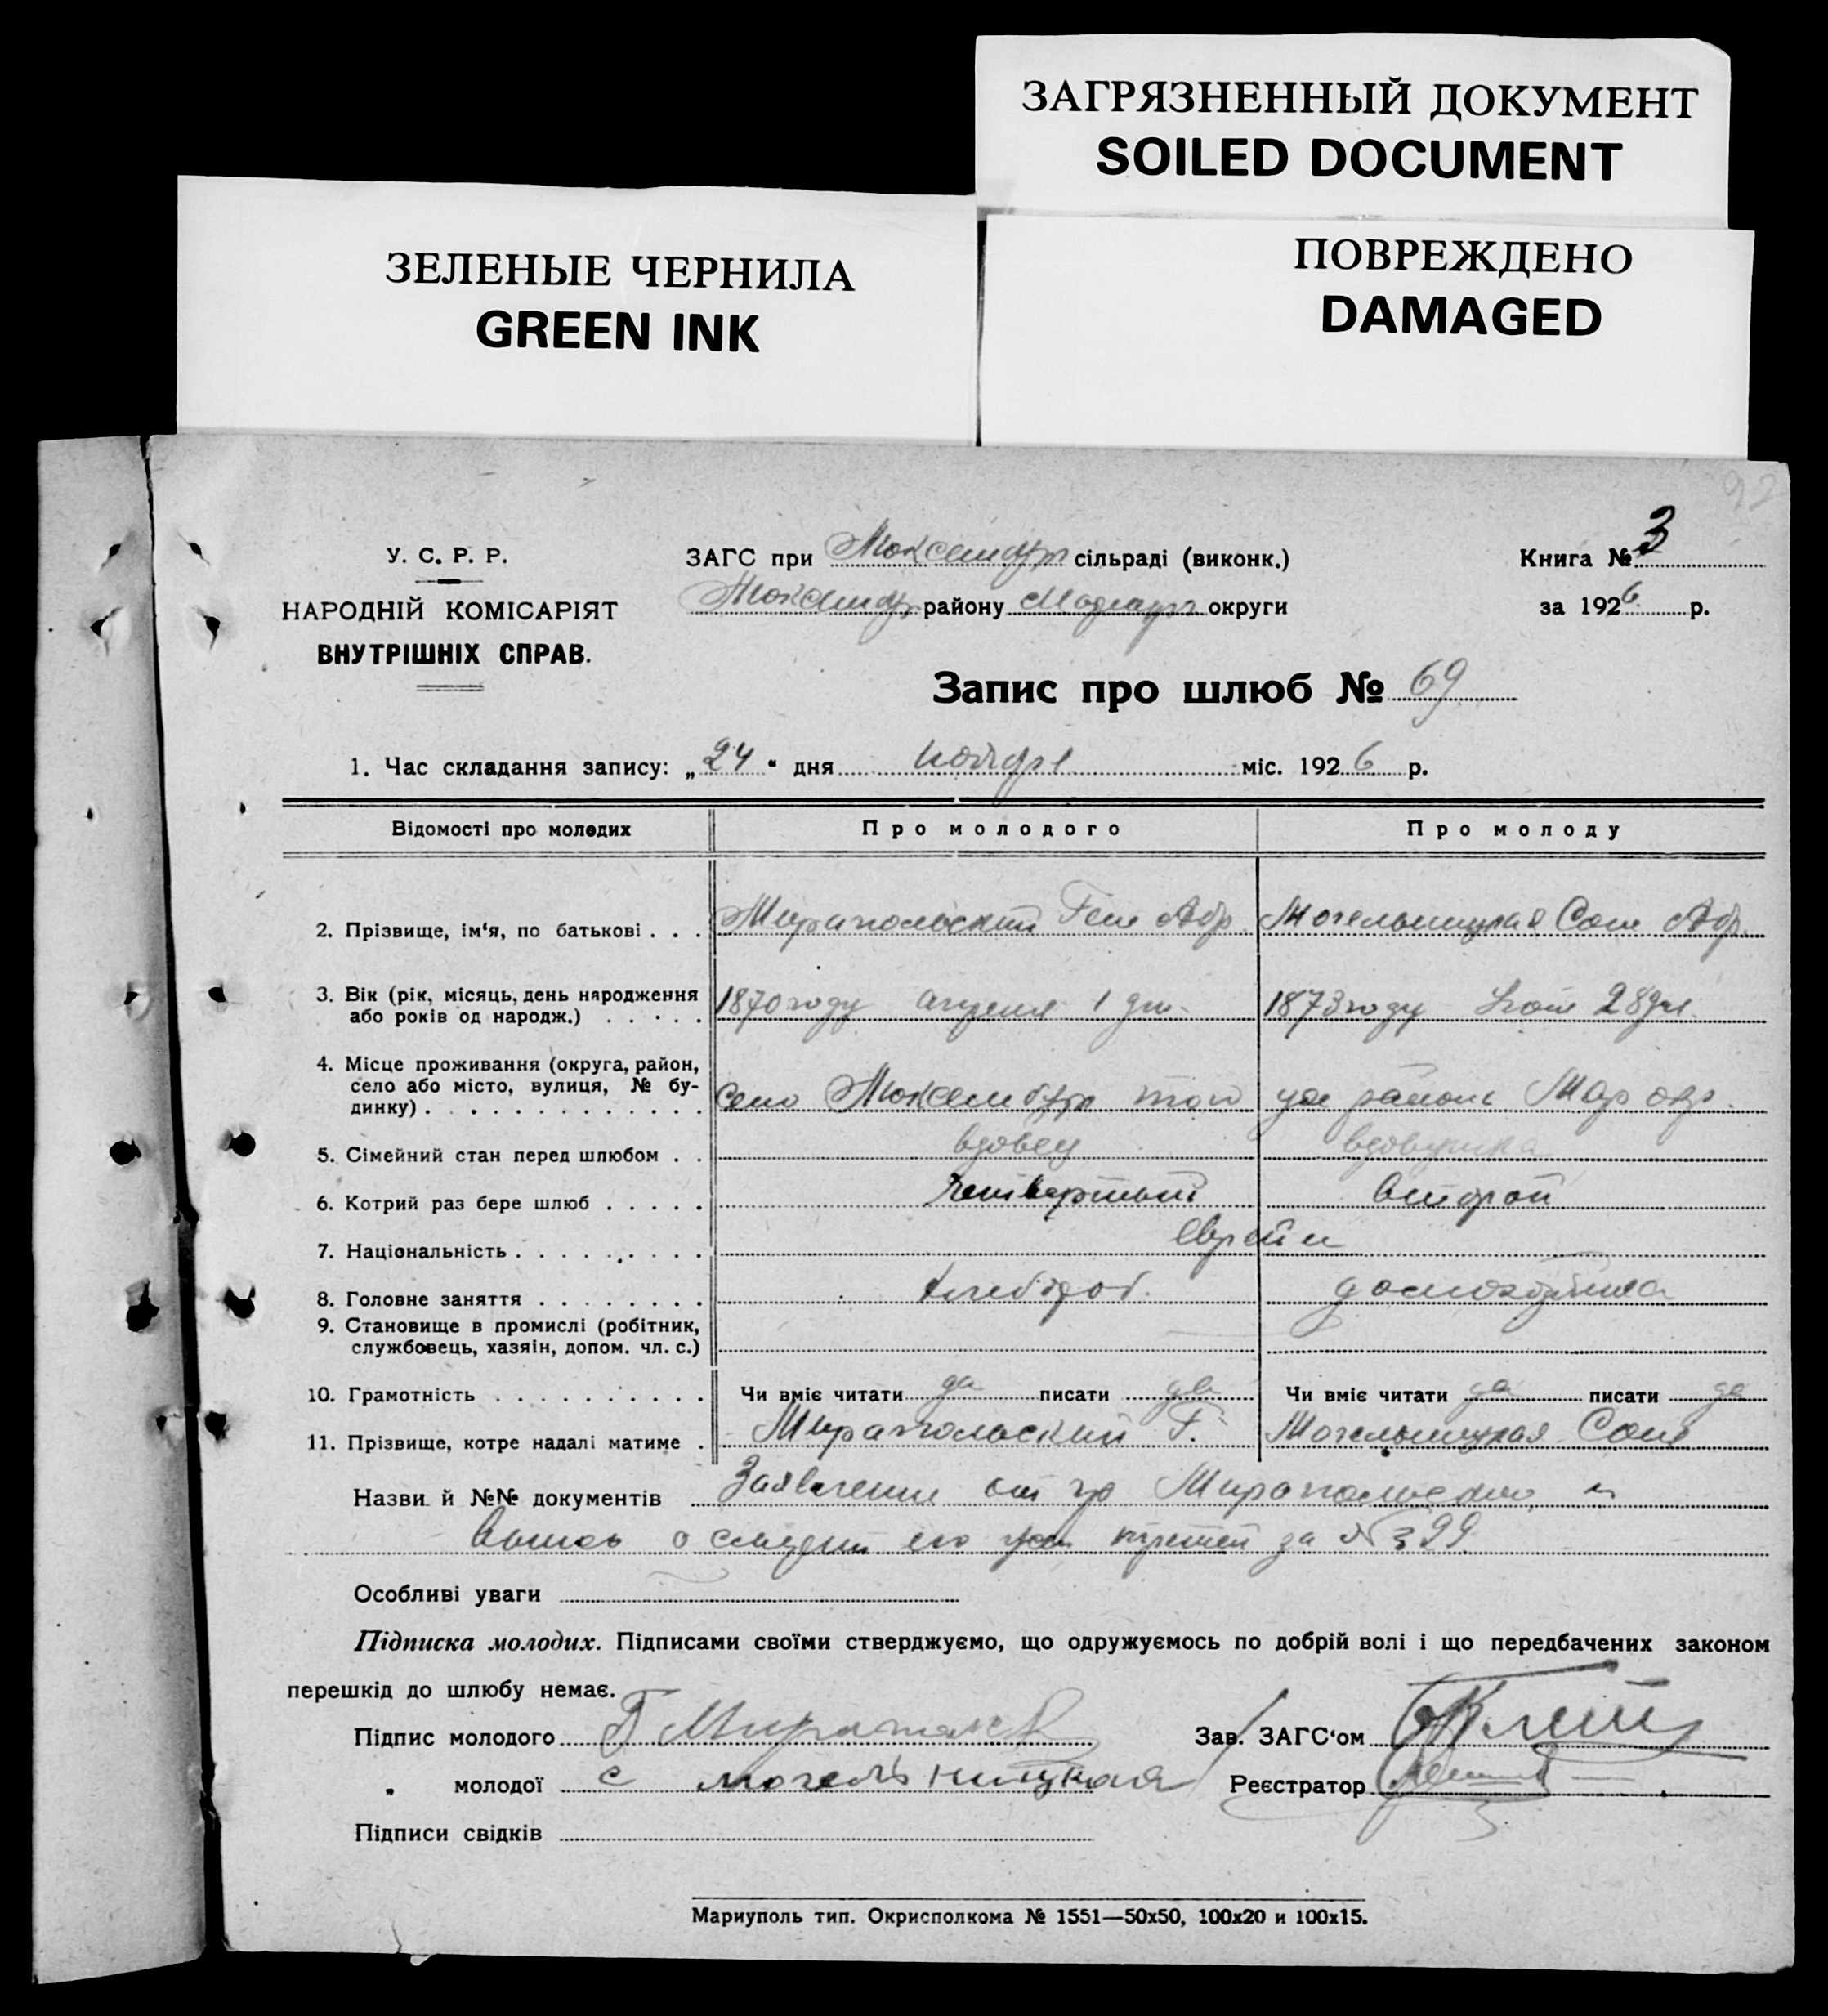 ЗАГРЯЗНЕННЫЙ ДОКУМЕНТ
SOILED DOCUMENT
ЗЕЛЕНЫЕ ЧЕРНИЛА
GREEN INK
ПОВРЕЖДЕНО
DAMAGED
У. С. Р. Р.
НАРОДНІЙ КОМІСАРІЯТ
ВНУТРІШНІХ СПРАВ.
ЗАГС при сільраді (виконк.)
району округи
Книга № 3
за 1926 р.
Запис про шлюб № 69
1. Час складання запису: „24“ дня ноября міс. 1926 р.
Відомості про молодих Про молодого Про молоду
2. Прізвище, ім'я, по батькові . . . Миропольский Абр. Могельницкая Соня Абр.
3. Вік (рік, місяць, день народження
або років од народж.) . . . . . 1870 году апреля 1 дня 1873 году 28 дня
4. Місце проживання (округа, район,
село або місто, вулиця, № бу-
динку) . . . . . . . . . . . . . село того района Мар окр.
5. Сімейний стан перед шлюбом . . вдовец
6. Котрий раз бере шлюб . . . . . четвертый второй
7. Національність . . . . . . . . . Евреи
8. Головне заняття . . . . . . . . хлебороб. домохозяйка
9. Становище в промислі (робітник,
службовець, хазяін, допом. чл. с.)
10. Грамотність . . . . . . . . . . . Чи вміє читати да писати да Чи вміє читати да писати да
11. Прізвище, котре надалі матиме . Миропольский Г. Могельницкая Соня
Назви й №№ документів Заявление от гр Миропольского и
о смерти его за № 399
Особливі уваги
Підписка молодих. Підписами своїми стверджуємо, що одружуємось по добрій волі і що передбачених законом
перешкід до шлюбу немає.
Підпис молодого Г Миропольск
Зав. ЗАГС'ом
„ молодої С могельницкая
Реєстратор
Підписи свідків
Мариуполь тип. Окрисполкома № 1551—50х50, 100х20 и 100х15.